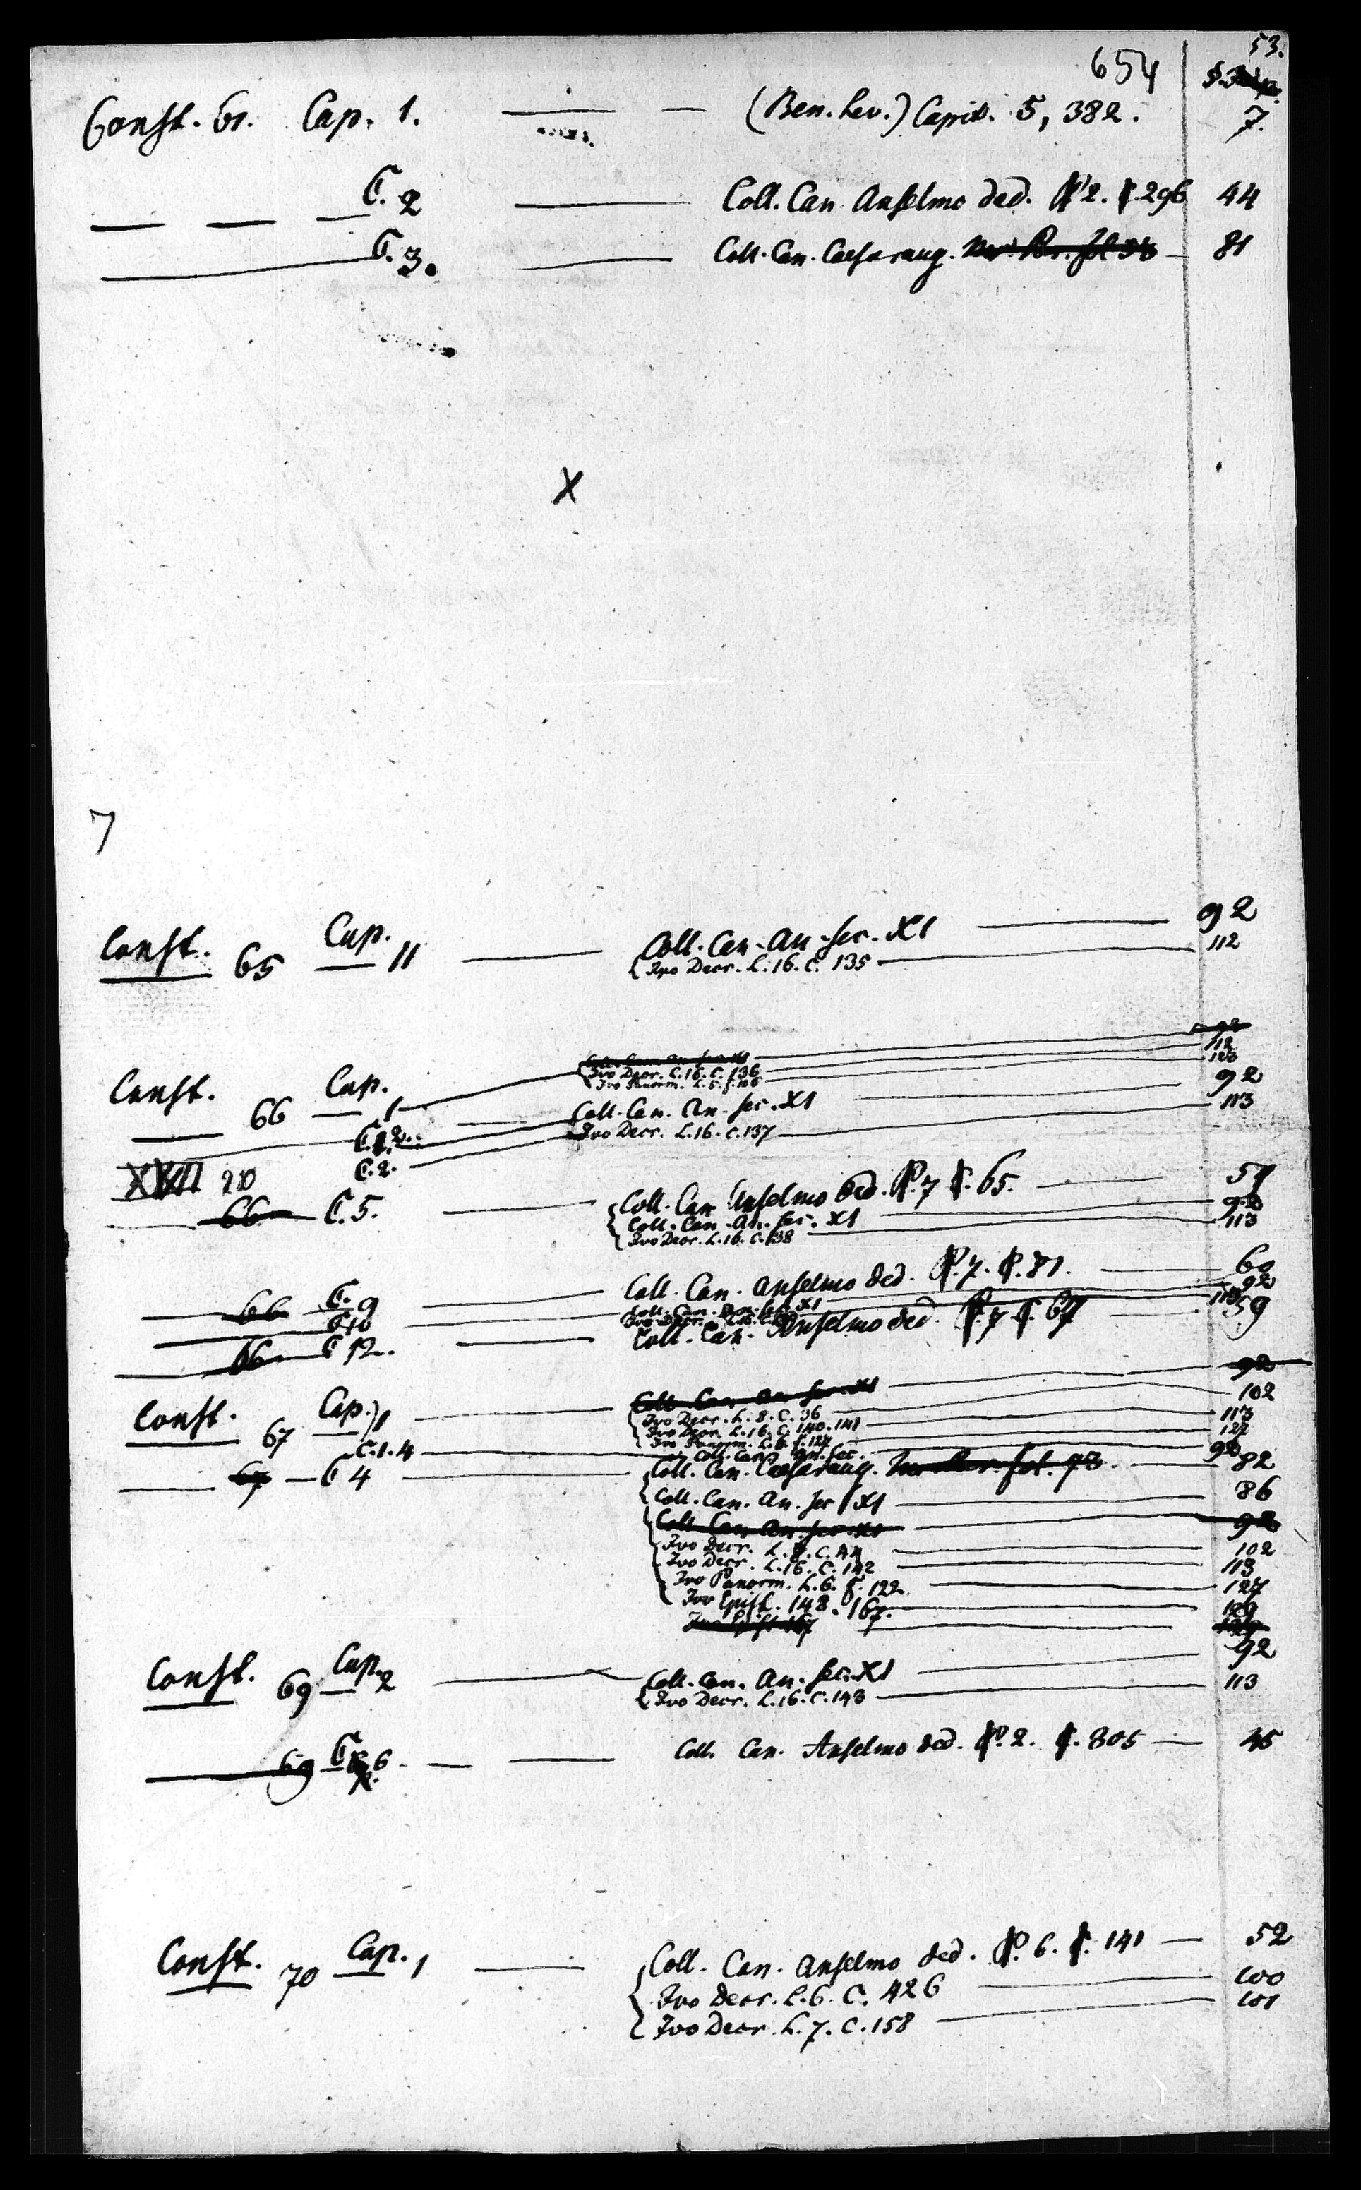 53.
654
Const. 61. Cap. 1. — — (Ben. Lev.) Capit. 5, 382. 7.
— — — C. 2 — Coll. Can. Anselmo ded. P. 2. C. 296 44
— C. 3. — Coll. Can. Caesaraug. — 81
X
7
Const. 65 Cap. 11 — Coll. Can. An. sec. XI — 92
Ivo Decr. L. 16. C. 135 — 112
Const. 66 Cap. 1 — Coll. Can. An. sec. XI — 92
Ivo Decr. L. 16. C. 136 — 112
Ivo Panorm.
C. 2. Coll. Can. An. sec. XI — 92
C. 2. Ivo Decr. L. 16. C. 137 — 113
20
— 66 C. 5. — Coll. Can. Anselmo ded. P. 7 C. 65. — 59
Coll. Can. An. sec. XI — 92
Ivo Decr. L. 16. C. 138 — 113
— 66 C. 9 — Coll. Can. Anselmo ded. P. 7. C. 81. — 60
C. 10 — Coll. Can. An. sec. XI — 92
— 66 C. 12. — Coll. Can. Anselmo ded. P. 7 C. 67 59
Const. 67 Cap. 1 — Coll. Can. An. sec. XI — 92
Ivo Decr. L. 8. C. 36 — 102
Ivo Decr. L. 16. C. 140. 141 — 113
Ivo Panorm. L. 6. — 127
C. 1. 4 — Coll. Can. An. sec. — 92
— 67 — C. 4 — Coll. Can. Caesaraug. — 82
Coll. Can. An. sec XI — 86
Coll. Can. An. sec. XI — 92
Ivo Decr. L. 8. C. 44 — 102
Ivo Decr. L. 16. C. 142 — 113
Ivo Panorm. L. 6. C. 122 — 127
Ivo Epist. 148. 167. — 129
Ivo Epist. 167 — 129
Const. 69 Cap. 2 — Coll. Can. An. sec. XI — 92
Ivo Decr. L. 16. C. 143 — 113
— 69 C. 6. — — Coll. Can. Anselmo ded. P. 2. C. 305 — 45
Const. 70 Cap. 1 — Coll. Can. Anselmo ded. P. 6. C. 141 — 52
Ivo Decr. L. 6. C. 426 — 100
Ivo Decr. L. 7. C. 158 — 101